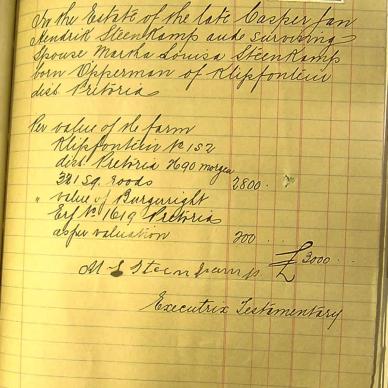 In the Estate of the late Casper Jan
Hendrik Steenkamp and surviving
Spouse Martha Louisa Steenkamp
born Opperman of Klipfontein
dist Pretoria
Per value of the farm
Klipfontein No 152
dist Pretoria 2690 morgen
321 Sq. Roods 2800
" value of Burguright
Erf No 1619 Pretoria
as per valuation 200
M L Steenkamp £ 3000
Executrix Testamentary